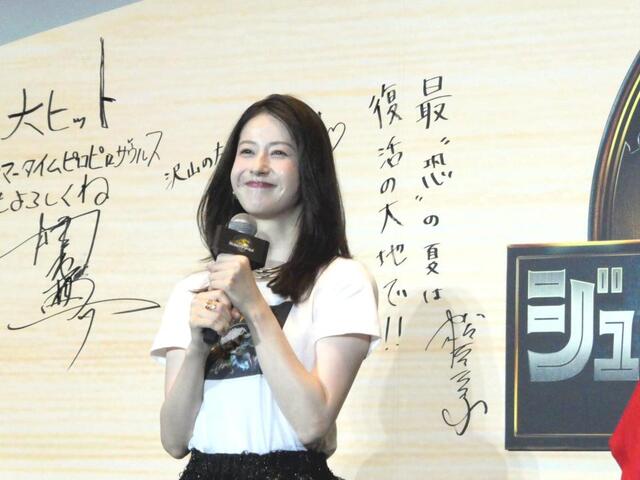 大ヒット
マータイムピコピロザウルス
よろしくね
沢山の
最“恐”の夏は
復活の大地で!!
ジュ